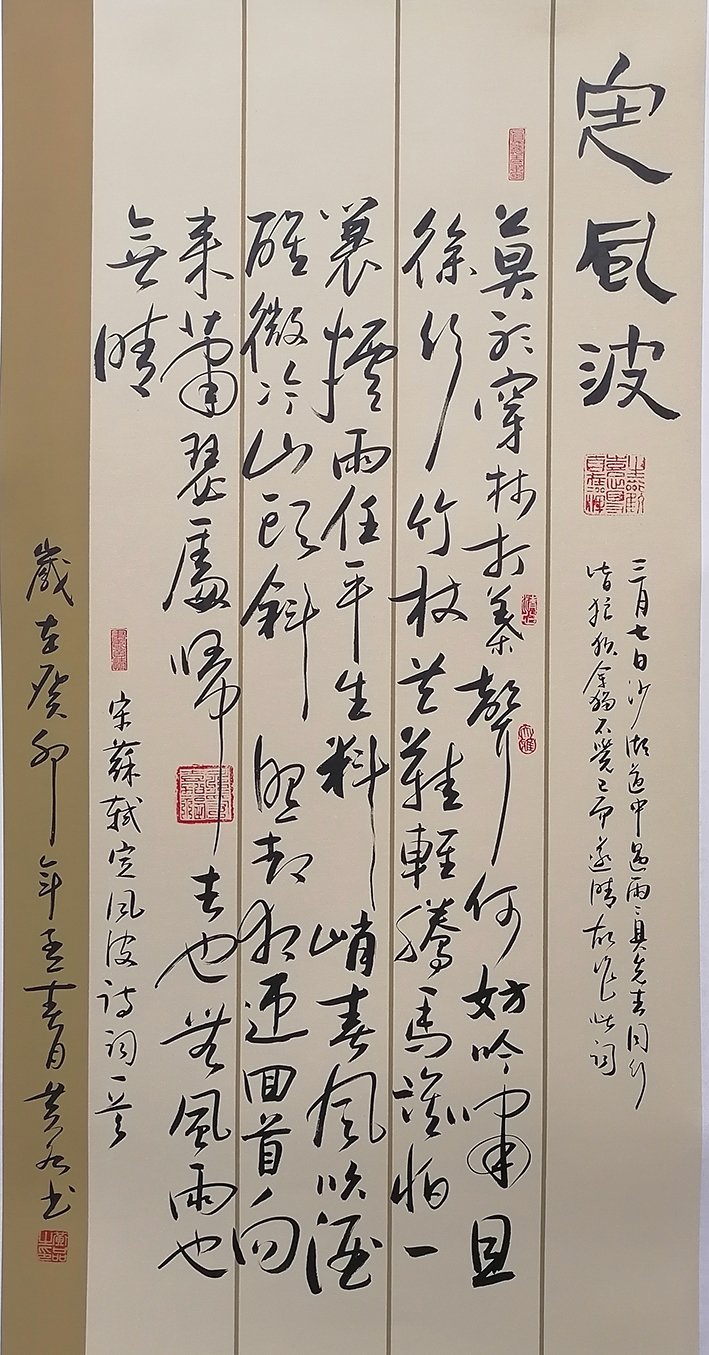 定風波
三月七日沙湖道中遇雨雨具先去同行
皆狼狽余獨不覺已而遂晴故作此詞
莫听穿林打葉聲何妨吟嘯且
徐行竹杖芒鞋輕勝馬誰怕一
蓑煙雨任平生料峭春風吹酒
醒微冷山頭斜照却相迎回首向
来蕭瑟處歸去也無風雨也
無晴
宋蘇軾定風波詩詞一首
歲在癸卯年孟春月黄书